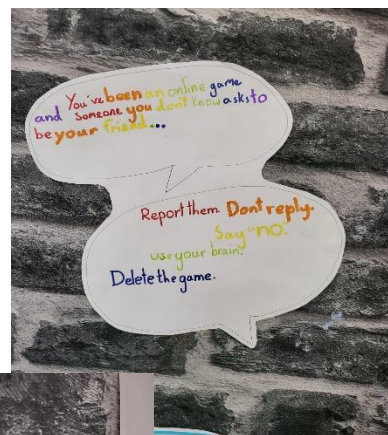 You've been an online game
and Someone you don't know asks to
be your friend...
Report them Don't reply.
Say "no.
use your brain.
Delete the game.